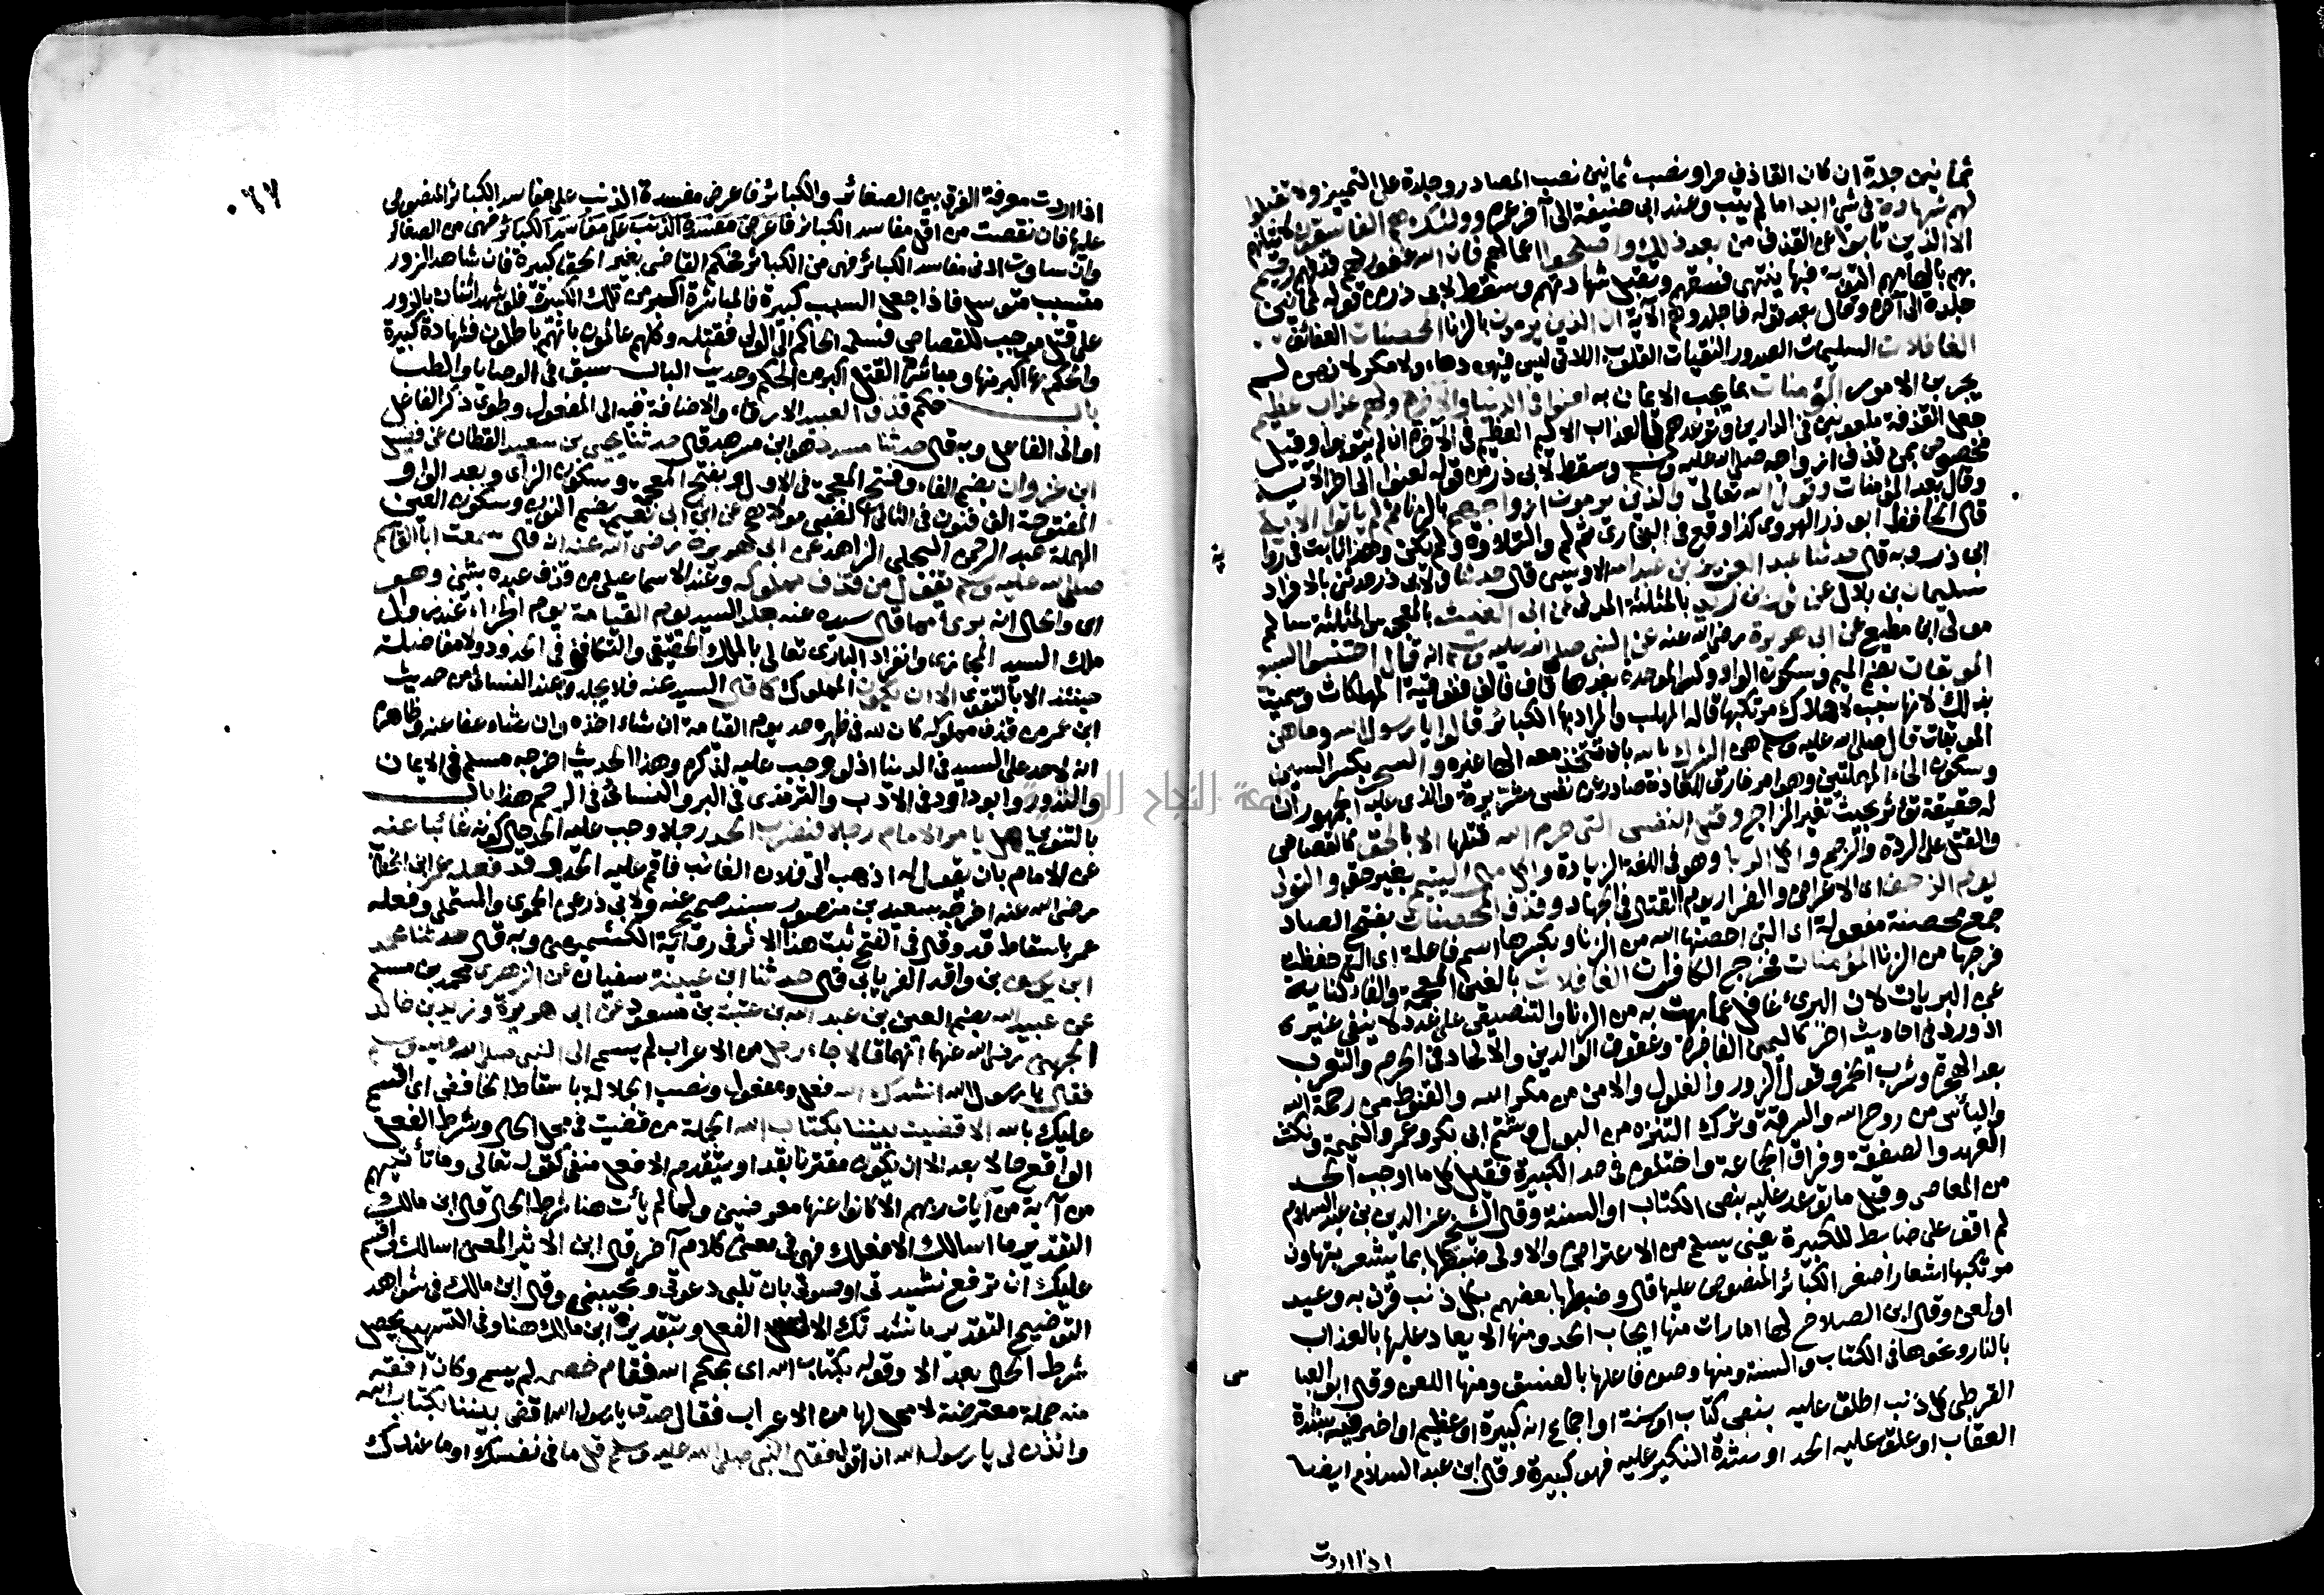 ثمانين جلدة ان كان القاذف حرا ونصب ثمانين نصب المصادر وجلدة على التمييز ولا تقبلوا
لهم شهادة في شئ ابدا ما لم يتب وعند ابي حنيفة الى آخر عمره واولئك هم الفاسقون
الا الذين تابوا عن القذف من بعد ذلك واصلحوا اعمالهم فان الله غفور لهم قذفهم رحيم
بهم بالهامهم التوبة فبها ينتهي فسقهم وتقبل شهادتهم وسقط لابي ذر من قوله ثمانين
جلدة الى آخره وقال بعد قوله فاجلدوهم الآية ان الذين يرمون بالزنا المحصنات العفائف
الغافلات السليمات الصدور النقيات القلوب اللاتي ليس فيهن دهاء ولا مكر لانهن لم
يجربن الامور المؤمنات بما يجب الايمان به لعنوا في الدنيا والآخرة ولهم عذاب عظيم
جعل القذفة ملعونين في الدارين وتوعدهم بالعذاب الاليم العظيم في الآخرة ان لم يتوبوا وقيل
مخصوص بمن قذف ازواجه صلى الله عليه وسلم وسقط لابي ذر من قوله لعنوا الى آخر الآية
وقال بعد المؤمنات وقول الله تعالى والذين يرمون ازواجهم بالزنا ثم لم ياتوا الآية
قال الحافظ ابو ذر الهروي كذا وقع في البخاري ثم لم والتلاوة ولم يكن وهذا ثابت في روا
ية
ابي ذر وبه قال حدثنا عبد العزيز بن عبد الله الاويسي قال حدثنا ولابي ذر حدثني بالافراد
سليمان بن بلال عن ثور بن زيد بالمثلثة المدني عن ابي الغيث بالمعجمة والمثلثة سالم
مولى ابن مطيع عن ابي هريرة رضي الله عنه عن النبي صلى الله عليه وسلم انه قال اجتنبوا السبع
الموبقات بضم الميم وسكون الواو وكسر الموحدة بعدها قاف فالف ففوقية المهلكات وسميت
بذلك لانها سبب لاهلاك مرتكبها قاله المهلب والمراد بها الكبائر قالوا يا رسول الله وما هن
الموبقات قال صلى الله عليه وسلم هي الشرك بالله بان تتخذ معه الها غيره والسحر بكسر السين
وسكون الحاء المهملتين وهو امر خارق للعادة صادر عن نفس شريرة والذي عليه الجمهور ان
له حقيقة تؤثر بحيث تغير المزاج وقتل النفس التي حرم الله قتلها الا بالحق كالقصاص
والقتل على الردة والرجم واكل الربا وهو في اللغة الزيادة واكل مال اليتيم بغير حق والتولي
يوم الزحف اي الاعراض والفرار يوم القتال في الجهاد وقذف المحصنات بفتح الصاد
جمع محصنة مفعولة اي التي احصنها الله من الزنا وبكسرها اسم فاعلة اي التي حفظت
فرجها من الزنا المؤمنات فخرج الكافرات الغافلات بالغين المعجمة والفاء كناية
عن البريات لان البرئ غافل عما بهت به من الزنا والتنصيص على عدد لا ينفي غيره كا
اذ ورد في احاديث اخر كاليمين الفاجرة وعقوق الوالدين والالحاد في الحرم والتعرب
بعد الهجرة وشرب الخمر وقول الزور والغلول والامن من مكر الله والقنوط من رحمة الله
واليأس من روح الله والسرقة وترك التنزه من البول وشتم ابي بكر وعمر والنميمة ونكث
العهد والصفقة وفراق الجماعة واختلفوا في حد الكبيرة فقيل كل ما اوجب الحد
من المعاصي وقيل ما توعد عليه بنص الكتاب او السنة وقال الشيخ عز الدين بن عبد السلام
لم اقف على ضابط للكبيرة يعني يسلم من الاعتراض والاولى ضبطها بما يشعر بتهاون
مرتكبها اشعار اصغر الكبائر المنصوص عليها قال وضبطها بعضهم بكل ذنب قرن به وعيد
او لعن وقال ابن الصلاح لها امارات منها ايجاب الحد ومنها الايعاد عليها بالعذاب
بالنار ونحوها في الكتاب والسنة ومنها وصف فاعلها بالفسق ومنها اللعن وقال ابو العبا
س
القرطبي كل ذنب اطلق عليه بنص كتاب او سنة او اجماع انه كبيرة او عظيم او اخبر فيه بشدة
العقاب او علق عليه الحد او شدة النكير عليه فهو كبيرة وقال ابن عبد السلام ايضا
اذا اردت
٠٦٧
اذا اردت معرفة الفرق بين الصغائر والكبائر فاعرض مفسدة الذنب على مفاسد الكبائر المنصوص
عليها فان نقصت من اقل مفاسد الكبائر فاعرض مفسدة الذنب على مفاسد الكبائر فهي من الصغائر
وان ساوت ادنى مفاسد الكبائر فهي من الكبائر فحكم القاضي بغير الحق كبيرة فان شاهد الزور
متسبب متوسل فاذا جعل السبب كبيرة فالمباشرة اكبر من تلك الكبيرة فلو شهد اثنان بالزور
على قتل موجب للقصاص فسلمه الحاكم الى الولي فقتله وكلهم عالمون بانهم باطلون فشهادة كبيرة
والحكم بها اكبر منها ومباشرة القتل اكبر من الحكم وحديث الباب سبق في الوصايا والطب
باب حكم قذف العبيد الارقاء والاضافة فيه الى المفعول وطوي ذكر الفاعل
او الى الفاعل وبه قال حدثنا مسدد هو ابن مسرهد قال حدثنا يحيى بن سعيد القطان عن فضيل
ابن غزوان بضم الفاء وفتح المعجمة في الاول وبفتح المعجمة وسكون الزاي وبعد الواو
المفتوحة الف فنون في الثاني الضبي مولاهم عن ابن ابي نعيم بضم النون وسكون العين
المهملة عبد الرحمن البجلي الزاهد عن ابي هريرة رضي الله عنه انه قال سمعت ابا القاسم
صلى الله عليه وسلم يقول من قذف مملوكه وعند الاسماعيلي من قذف عبده بشئ وهو
اي والحال انه برئ مما قال سيده عنه جلد السيد يوم القيامة يوم الجزاء عند زوال
ملك السيد المجازي وانفراد الباري تعالى بالملك الحقيقي والتكافؤ في الحدود ولا مفاضلة
حينئذ الا بالتقوى الا ان يكون المملوك كما قال السيد عنه فلا يجلد وعند النسائي من حديث
ابن عمر من قذف مملوكه كان لله في ظهره حد يوم القيامة ان شاء اخذه وان شاء عفا عنه وظاهره
انه لا حد على السيد في الدنيا اذ لو وجب عليه لذكره وهذا الحديث اخرجه مسلم في الايمان
والنذور وابو داود في الادب والترمذي في البر والنسائي في الرجم هذا باب
بالتنوين هل يامر الامام رجلا فيضرب الحد رجلا وجب عليه الحد حال كونه غائبا عنه
عن الامام بان يقول له اذهب الى فلان الغائب فاقم عليه الحد وقد فعله عمر ابن الخطاب
رضي الله عنه اخرجه سعيد بن منصور بسند صحيح عنه ولابي ذر عن الحموي والمستملي وفعله
عمر باسقاط قد وقال في الفتح ثبت هذا الاثر في رواية الكشميهني وبه قال حدثنا محمد
ابن يوسف بن واقد الفريابي قال حدثنا ابن عيينة سفيان عن الزهري محمد بن مسلم
عن عبيد الله بضم العين بن عبد الله بن عتبة بن مسعود عن ابي هريرة وزيد بن خالد
الجهني رضي الله عنهما انهما قالا جاء رجل من الاعراب لم يسم الى النبي صلى الله عليه وسلم
فقال يا رسول الله انشدك الله فعل ومفعول ونصب الجلالة باسقاط الخافض اي اقسم
عليك بالله الا قضيت بيننا بكتاب الله الجملة من قضيت في محل الحال وشرط الفعل
الواقع حالا بعد الا ان يكون مقترنا بقد او يتقدم الا فعل منفي كقوله تعالى وما تأتيهم
من آية من آيات ربهم الا كانوا عنها معرضين ولما لم يأت هنا شرط الحال قال ابن مالك
التقدير ما اسالك الا فعلك فهي في معنى كلام آخر قال ابن الاثير المعنى اسالك واقسم
عليك ان ترفع نشيدتي او صوتي بان تلبي دعوتي وتجيبني وقال ابن مالك في شواهد
التوضيح التقدير ما نشدتك الا الفعل وبتقدير ابن مالك هنا وفي التسهيل يحصل
شرط الحال بعد الا وقوله بكتاب الله اي بحكم الله فقام خصمه لم يسم وكان افقه
منه جملة معترضة لا محل لها من الاعراب فقال صدق يا رسول الله اقض بيننا بكتاب الله
وائذن لي يا رسول الله ان اقول فقال النبي صلى الله عليه وسلم قل ما في نفسك او ما عندك